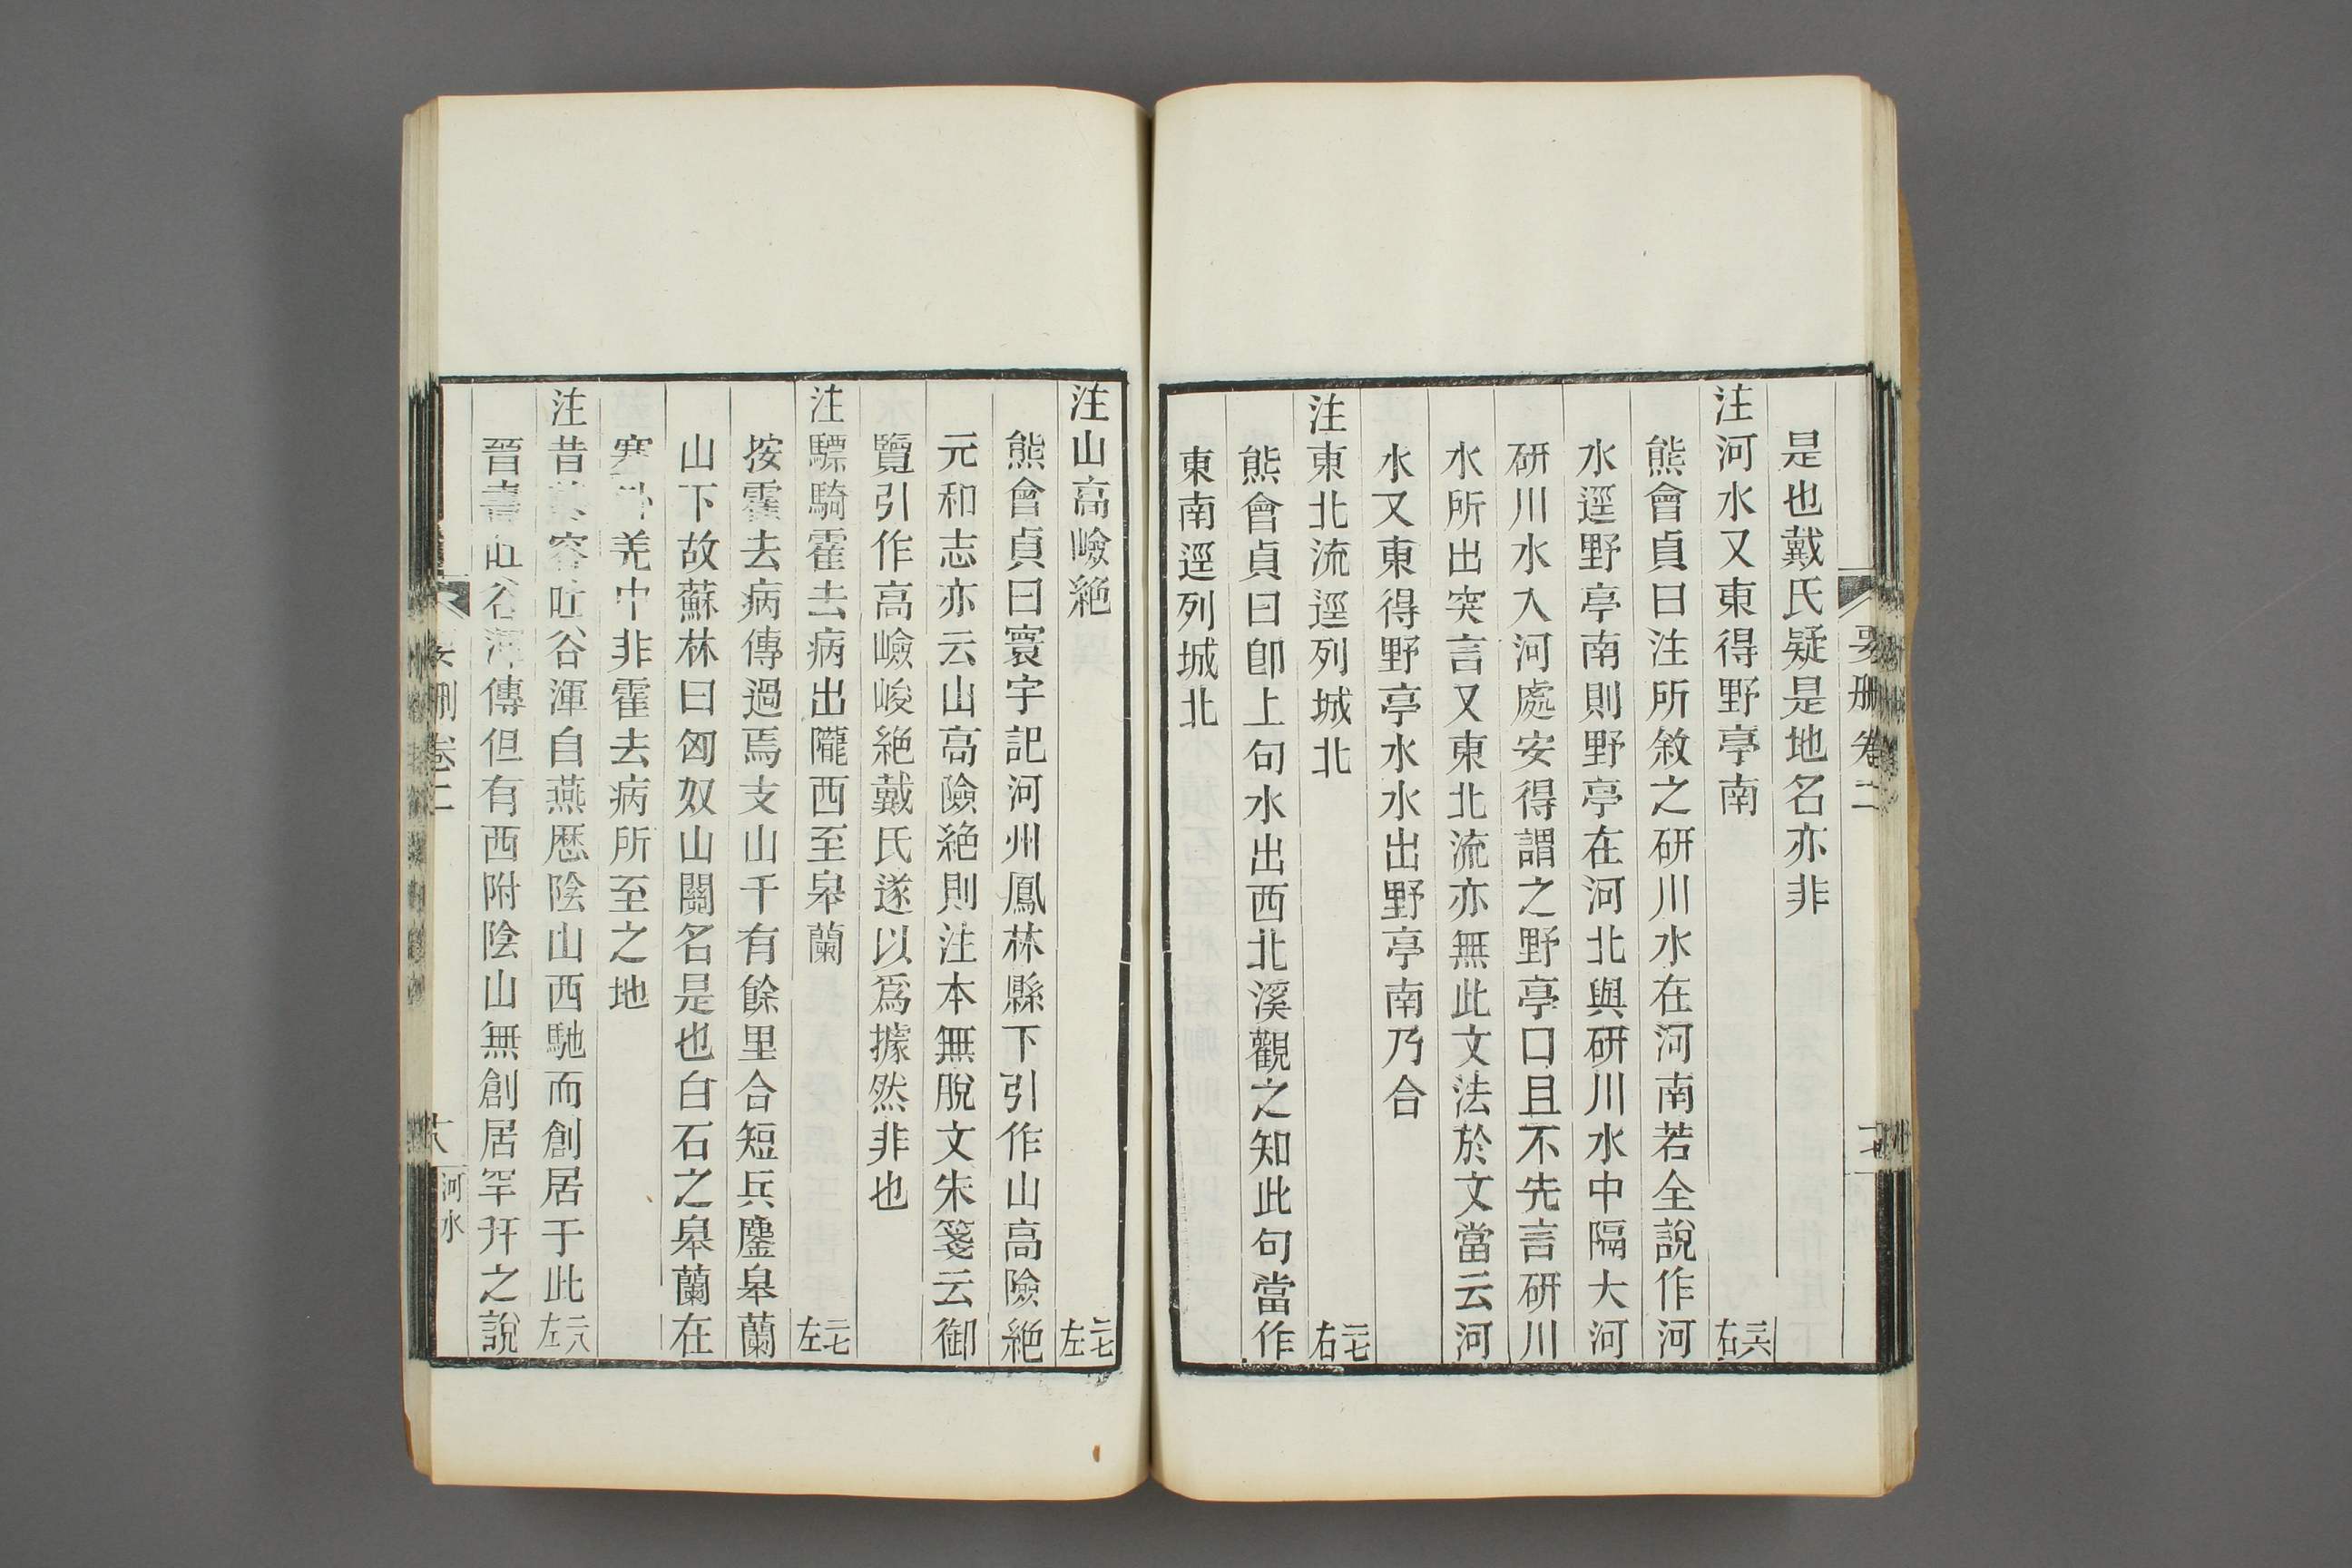 要刪卷二
是也戴氏疑是地名亦非
注河水又東得野亭南 二六右
熊會貞曰注所敘之研川水在河南若全說作河
水逕野亭南則野亭在河北與研川水中隔大河
研川水入河處安得謂之野亭口且不先言研川
水所出突言又東北流亦無此文法於文當云河
水又東得野亭水水出野亭南乃合
注東北流逕列城北 二七右
熊會貞曰卽上句水出西北溪觀之知此句當作
東南逕列城北
注山高嶮絶 二七左
熊會貞曰寰宇記河州鳳林縣下引作山高險絶
元和志亦云山高險絶則注本無脫文朱箋云御
覽引作高嶮峻絶戴氏遂以爲據然非也
注驃騎霍去病出隴西至皋蘭 二七左
按霍去病傳過焉支山千有餘里合短兵鏖皋蘭
山下故蘇林曰匈奴山關名是也白石之皋蘭在
塞外羌中非霍去病所至之地
注昔慕容吐谷渾自燕歷陰山西馳而創居于此 二八左
晉書吐谷渾傳但有西附陰山無創居罕幵之說
刪卷二
十八
河水